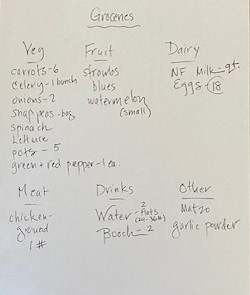 Groceries
Veg
carrots-6
Celery-1 bunch
onions-2
snap peas-bag
spinach
Lettuce
pots - 5
green + red pepper-1 ea.
Fruit
strawbs
blues
watermelon
(small)
Dairy
NF Milk-qt.
Eggs-18
Meat
chicken-
ground
1 #
Drinks
Water - 2 flats
Booch-2
Other
Matzo
garlic powder